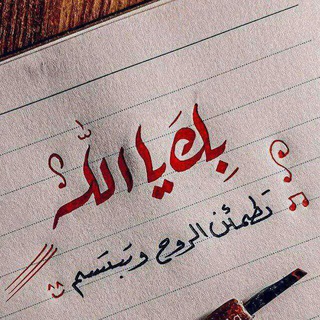 بِكَ يا اللّه
تطمئن الروح وتبتسم